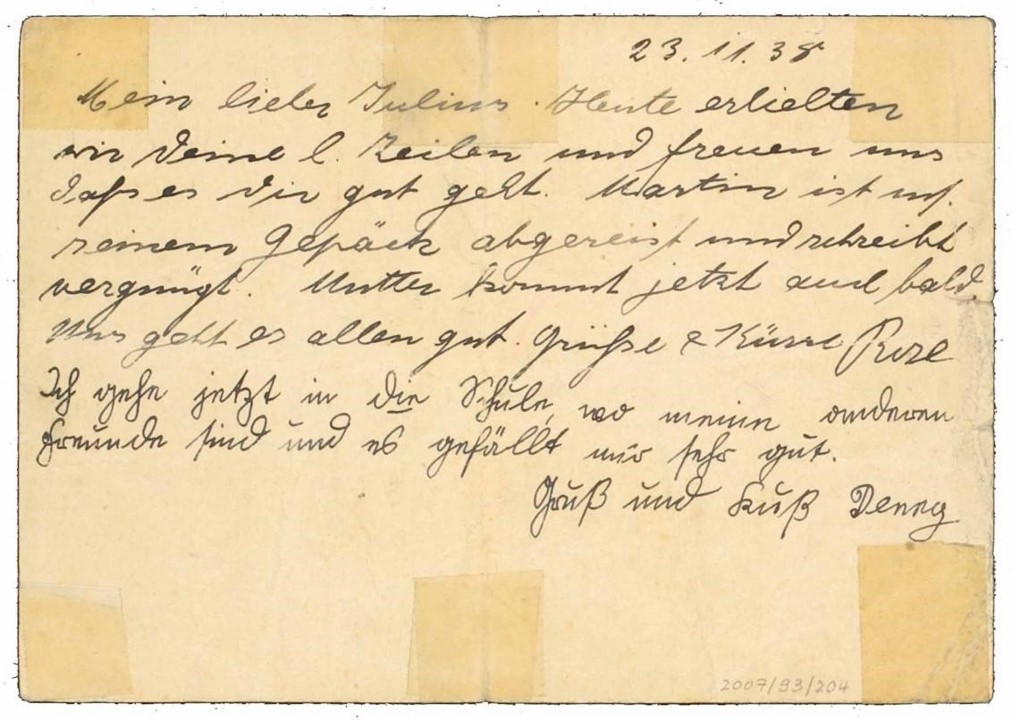 23.11.38
Mein lieber Julius. Heute erhielten
wir Deine l. Zeilen und freuen uns
dass es Dir gut geht. Martin ist mit
seinem Gepäck abgereist und schreibt
vergnügt. Mutter kommt jetzt auch bald.
Uns geht es allen gut. Grüße & Küsse
Ich gehe jetzt in die Schule, wo meine anderen
Freunde sind und es gefällt mir sehr gut.
Gruß und Kuß
2007/93/204